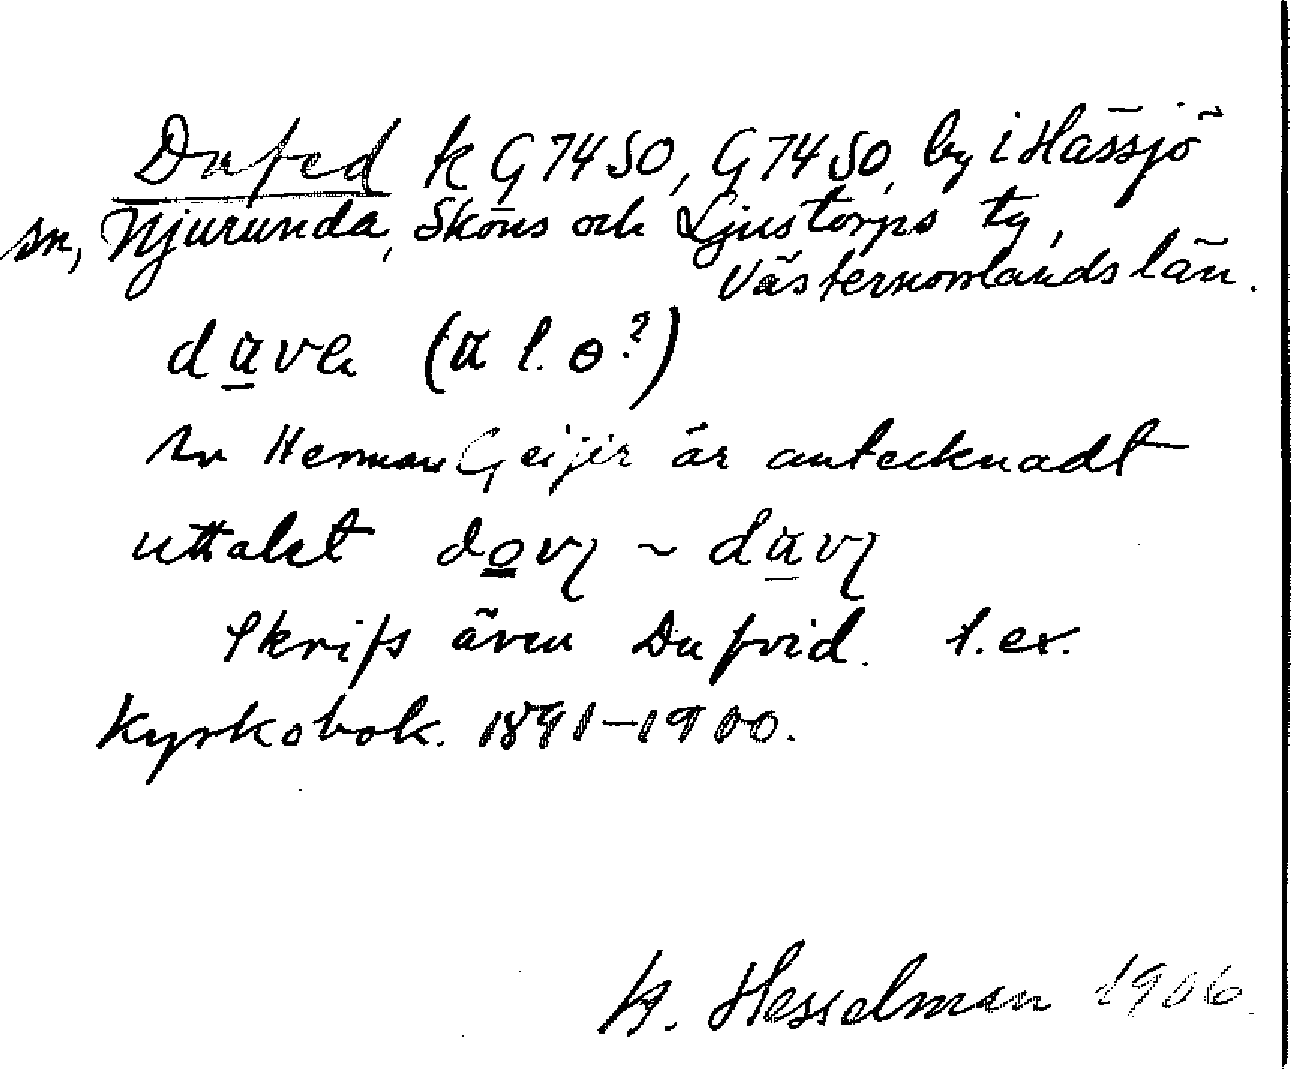 Dufed k G7450, G7450, by i Hässjö
sn, Njurunda, Sköns och Ljustorps tg,
Västernorrlands län.
dave (a l. o?)
Av Herman Geijer är antecknadt
uttalet dovȷ ~ davȷ
Skrifs även Dufvid. t.ex.
Kyrkobok. 1891–1900.
H. Hesselman 1906.